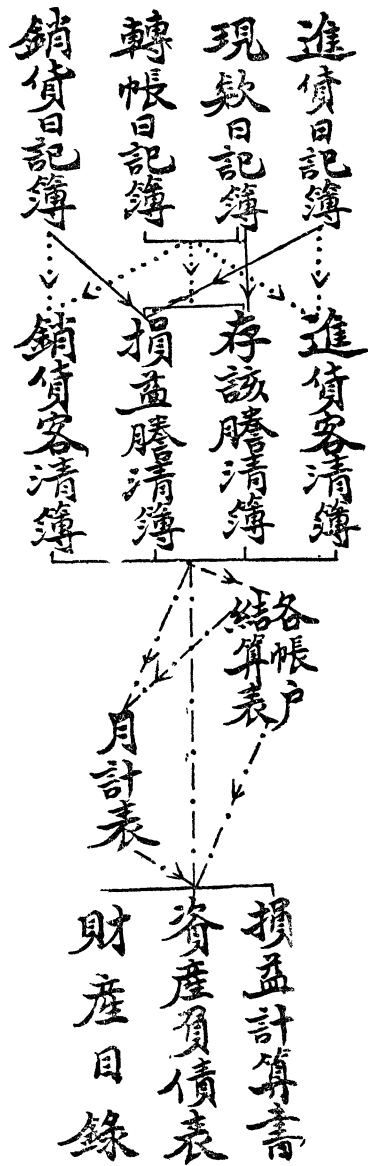 進貨日記簿
現欵日記簿
轉帳日記簿
銷貨日記簿
進貨客清簿
存該謄清簿
損益謄清簿
銷貨客清簿
各帳户
結算表
月計表
損益計算書
資產負債表
財產目錄